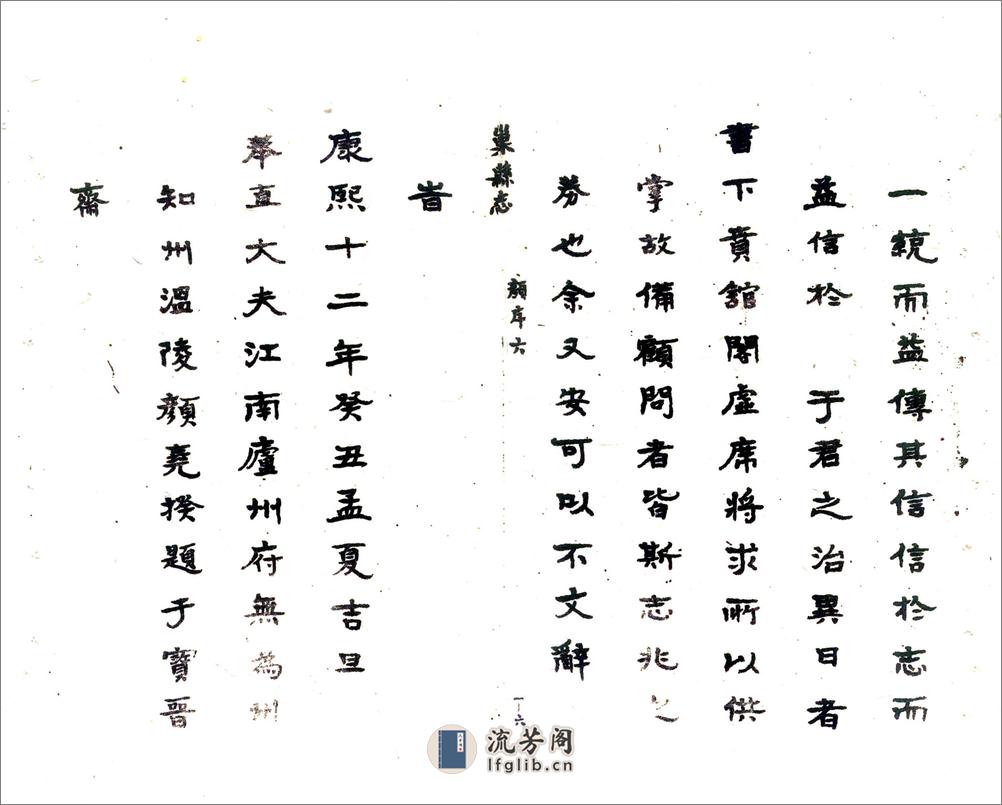 一統而益傳其信信於志而
益信於　于君之治異日者
書下賁舘閣虛席將求所以供
掌故備顧問者皆斯志兆之
券也余又安可以不文辭
巢縣志　顏序六　一-六
旹
康熙十二年癸丑孟夏吉旦
奉直大夫江南廬州府無為州
知州溫陵顏堯揆題于寶晉
齋
流芳阁
lfglib.cn